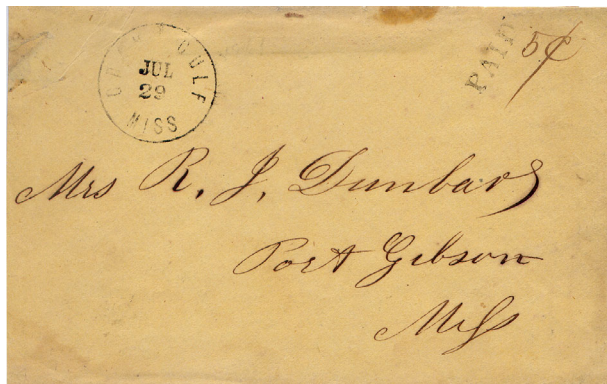 GRAND GULF
JUL
29
MISS
PAID
5¢
Mrs R. J. Dunbar
Port Gibson
Miss